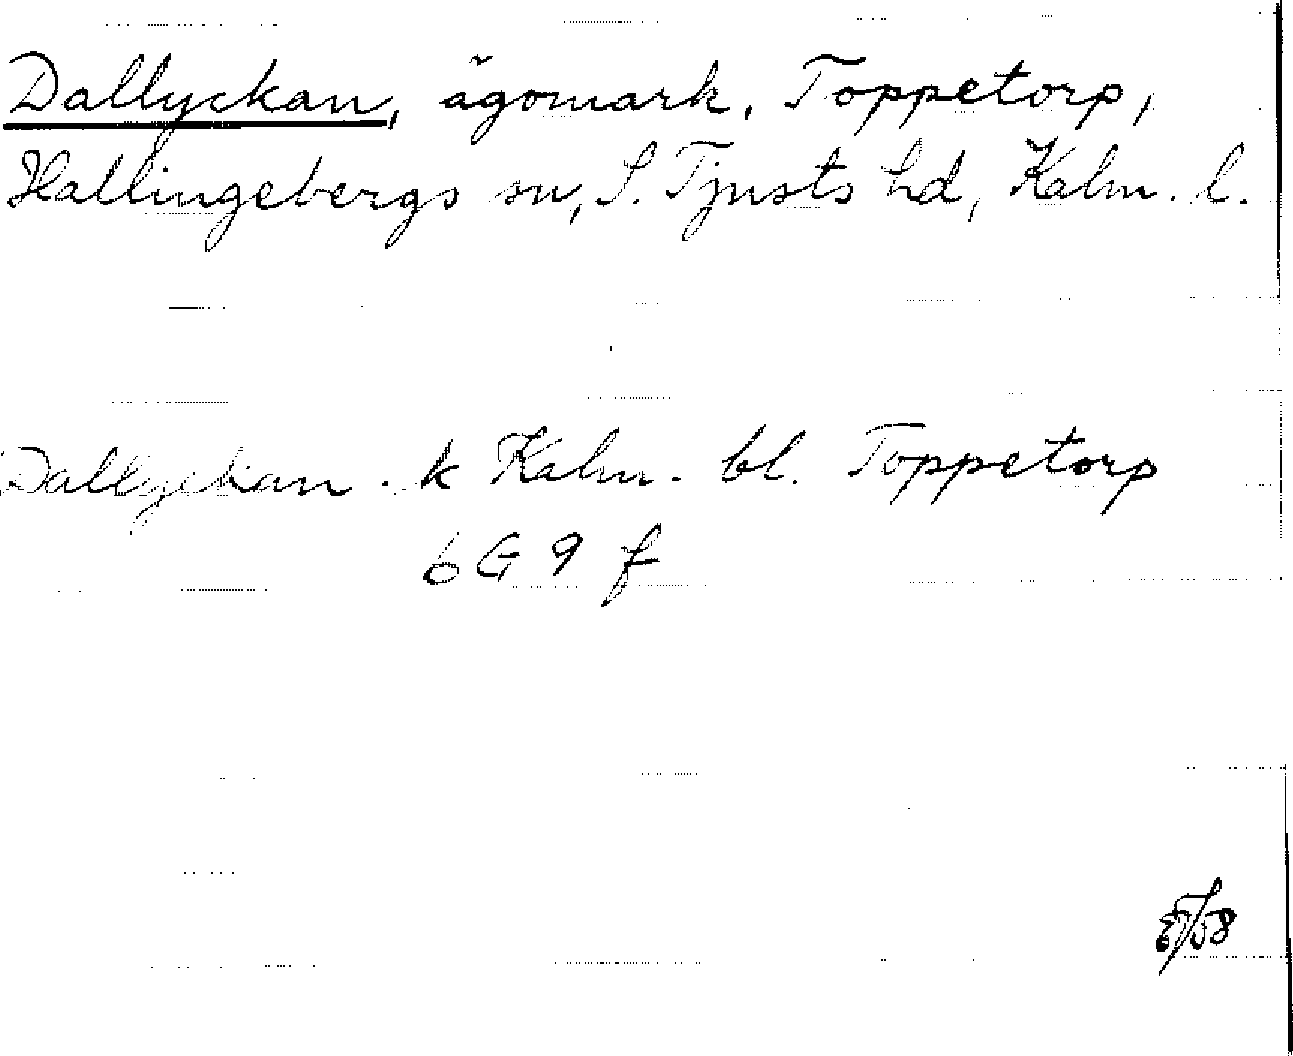 Dallyckan, ägomark, Toppetorp,
Hallingebergs sn, S. Tjusts hd, Kalm. l.
Dallyckan . k Kalm. bl. Toppetorp
6 G 9 f